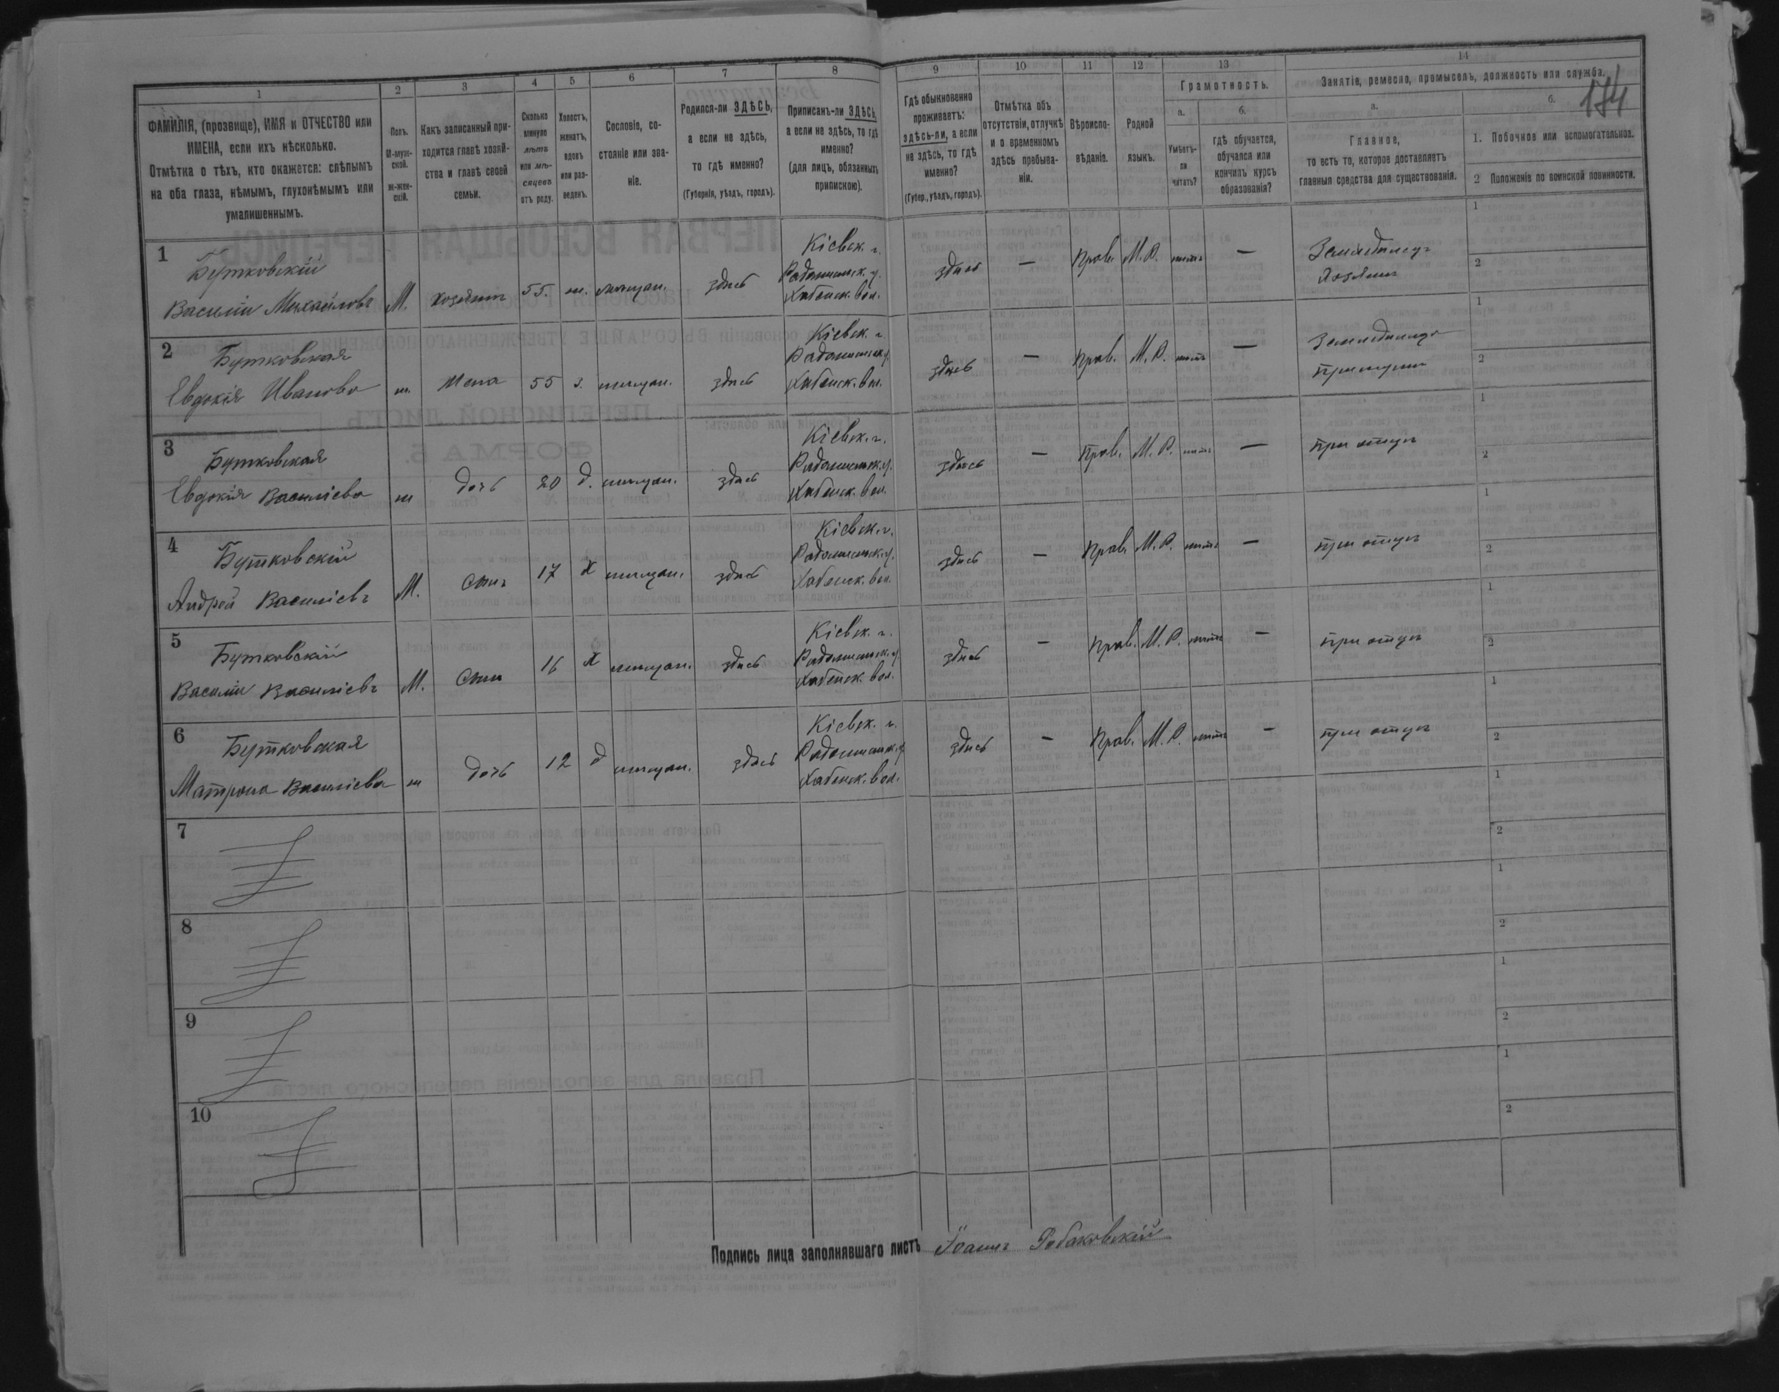 174
1
2
3
4
5
6
7
8
9
10
11
12
13
14
ФАМИЛІЯ, (прозвище), ИМЯ и ОТЧЕСТВО или
ИМЕНА, если ихъ нѣсколько.
Отмѣтка о тѣхъ, кто окажется: слѣпымъ
на оба глаза, нѣмымъ, глухонѣмымъ или
умалишеннымъ.
Полъ.
М-муж-
ской.
ж-жен-
скій.
Какъ записанный при-
ходится главѣ хозяй-
ства и главѣ своей
семьи.
Сколько
минуло
лѣтъ
или мѣ-
сяцевъ
отъ роду.
Холостъ,
женатъ,
вдовъ
или раз-
веденъ.
Сословіе, со-
стояніе или зва-
ніе.
Родился-ли ЗДѢСЬ,
а если не здѣсь,
то гдѣ именно?
(Губернія, уѣздъ, городъ).
Приписанъ-ли ЗДѢСЬ,
а если не здѣсь, то гдѣ
именно?
(для лицъ, обязанныхъ
припискою).
Гдѣ обыкновенно
проживаетъ:
здѣсь-ли, а если
не здѣсь, то гдѣ
именно?
(Губер., уѣздъ, городъ).
Отмѣтка объ
отсутствіи, отлучкѣ
и о временномъ
здѣсь пребыва-
ніи.
Вѣроиспо-
вѣданіе.
Родной
языкъ.
Грамотность.
а.
б.
Умѣетъ-
ли
читать?
гдѣ обучается,
обучался или
кончилъ курсъ
образованія?
Занятіе, ремесло, промыселъ, должность или служба.
а.
б.
Главное,
то есть то, которое доставляетъ
главныя средства для существованія.
1. Побочное или вспомогательное.
2 Положеніе по воинской повинности.
1
Бутковскій
Василій Михайловъ М. хозяинъ 55. ж. мѣщан. здѣсь
Кіевск. г.
Радомысльск. у.
Хабенск. вол.
здѣсь — Прав. М.Р. нѣтъ —
Земледѣлецъ
Хозяинъ
1
2
2
Бутковская
Евдокія Иванова ж. жена 55 з. мѣщан. здѣсь
Кіевск. г.
Радомысльск. у.
Хабенск. вол.
здѣсь — Прав. М.Р. нѣтъ —
Земледѣлецъ
При мужѣ
1
2
3
Бутковская
Евдокія Василіева ж дочь 20 д. мѣщан. здѣсь
Кіевск. г.
Радомысльск. у.
Хабенск. вол.
здѣсь — Прав. М.Р. нѣтъ — при отцѣ
1
2
4
Бутковскій
Андрей Василіевъ М. сынъ 17 х мѣщан. здѣсь
Кіевск. г.
Радомысльск. у.
Хабенск. вол.
здѣсь — Прав. М.Р. нѣтъ — при отцѣ
1
2
5
Бутковскій
Василій Василіевъ М. сынъ 16 х мѣщан. здѣсь
Кіевск. г.
Радомысльск. у.
Хабенск. вол.
здѣсь — Прав. М.Р. нѣтъ — при отцѣ
1
2
6
Бутковская
Матрона Василіева ж дочь 12 д мѣщан. здѣсь
Кіевск. г.
Радомысльск. у.
Хабенск. вол.
здѣсь — Прав. М.Р. нѣтъ — при отцѣ
1
2
7
1
2
8
1
2
9
1
2
10
1
2
Подпись лица заполнявшаго листъ Іоаннъ